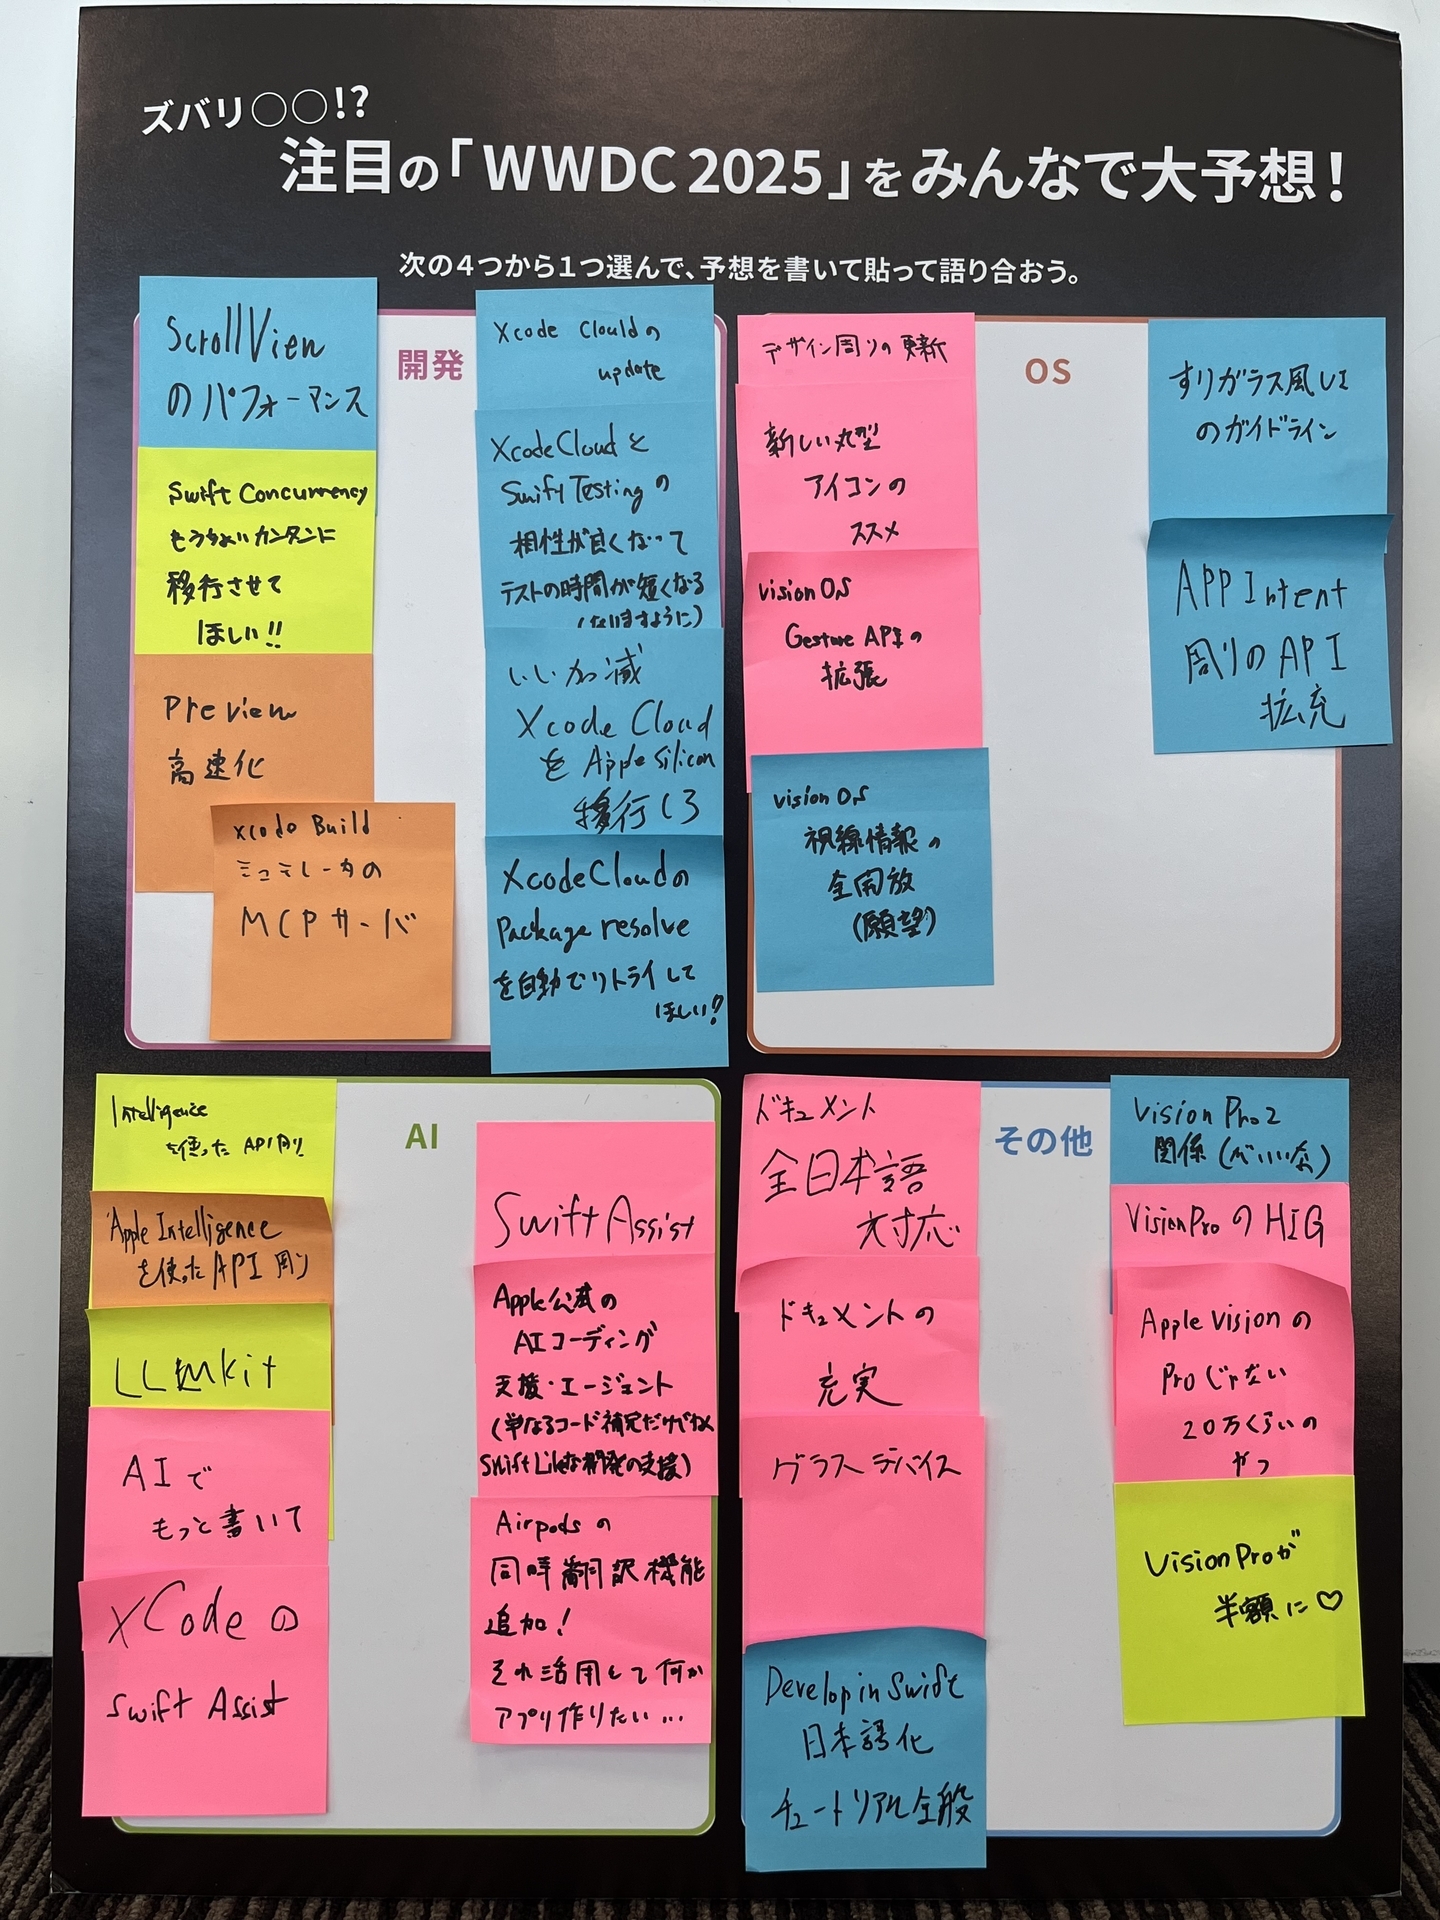 ズバリ○○!?
注目の「WWDC 2025」をみんなで大予想!
次の4つから1つ選んで、予想を書いて貼って語り合おう。
開発
ScrollView
のパフォーマンス
Swift Concurrency
もうちょいカンタンに
移行させて
ほしい!!
Preview
高速化
xcode Build
ミュテレータの
MCPサーバ
Xcode Clouldの
update
XcodeCloudと
Swift Testingの
相性が良くなって
テストの時間が短くなる
(なりますように)
いい加減
Xcode Cloud
を Apple silicon
移行しろ
XcodeCloudの
Package resolve
を自動でリトライして
ほしい!?
OS
デザイン周りの更新
新しい丸型
アイコンの
ススメ
vision OS
Gesture APIの
拡張
vision OS
視線情報の
全開放
(願望)
すりガラス風UI
のガイドライン
APP Intent
周りのAPI
拡充
AI
Intelligence
を使ったAPI周り
Apple Intelligence
を使ったAPI周り
LLMkit
AIで
もっと書いて
XCodeの
Swift Assist
Swift Assist
Apple公式の
AIコーディング
支援・エージェント
(単なるコード補完だけでなく
Swift Likeな開発の支援)
Airpodsの
同時翻訳機能
追加!
それ活用して何か
アプリ作りたい...
その他
ドキュメント
全日本語
対応
ドキュメントの
充実
グラスデバイス
Develop in Swift
日本語化
チュートリアル全般
Vision Pro2
関係(がいいな)
VisionProのHIG
Apple Visionの
Proじゃない
20万くらいの
やつ
VisionProが
半額に♡